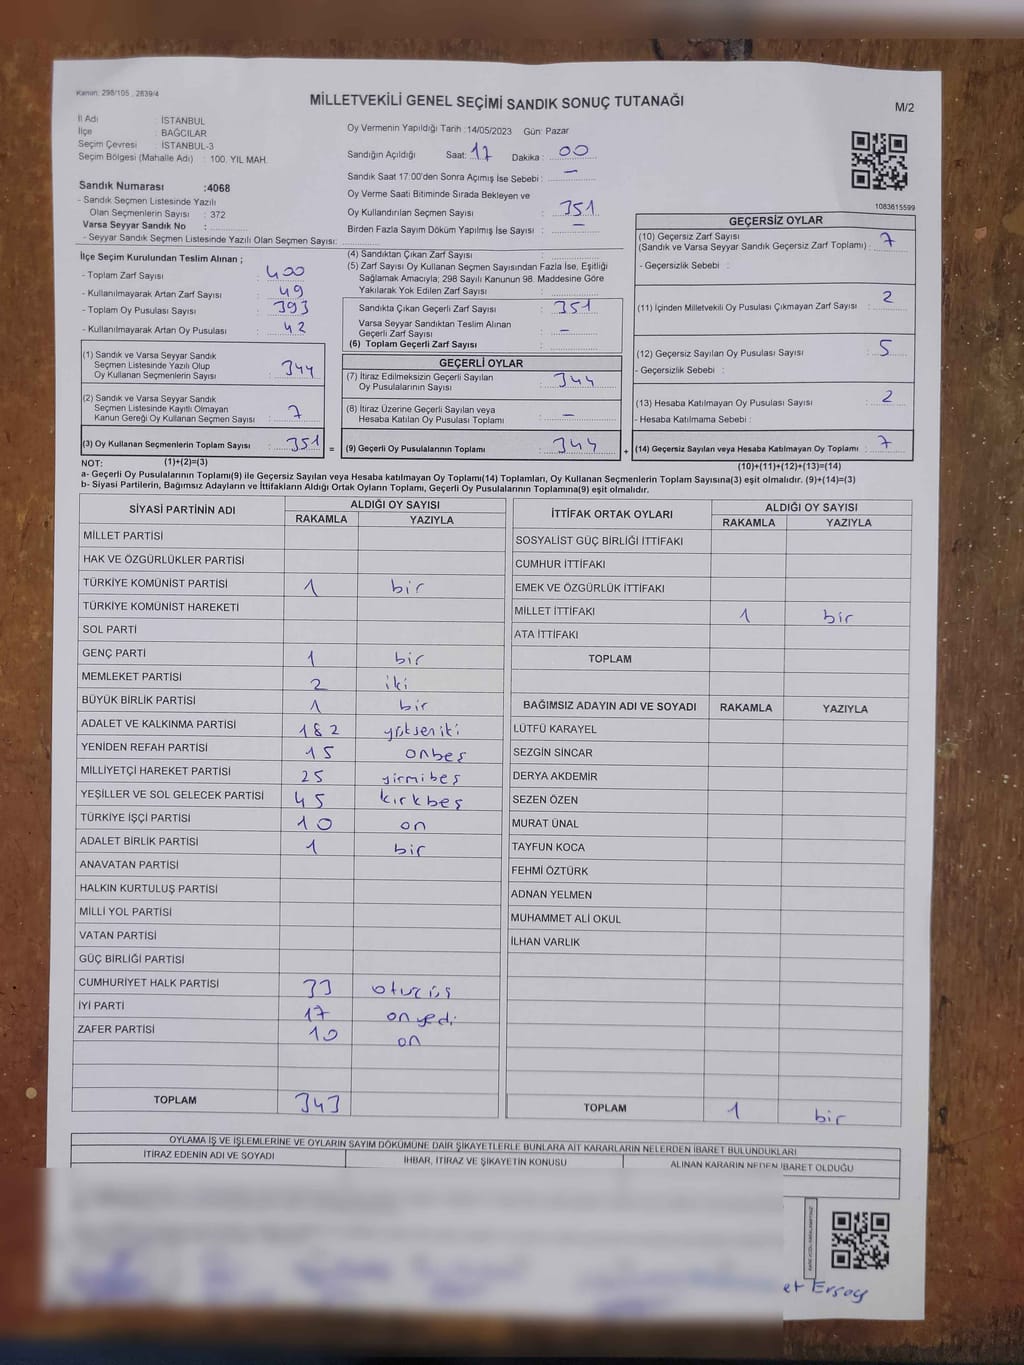 Kanun: 298/105 , 2839/4
MİLLETVEKİLİ GENEL SEÇİMİ SANDIK SONUÇ TUTANAĞI
M/2
İl Adı : İSTANBUL
İlçe : BAĞCILAR
Seçim Çevresi : İSTANBUL-3
Seçim Bölgesi (Mahalle Adı) : 100. YIL MAH.
Sandık Numarası :4068
- Sandık Seçmen Listesinde Yazılı
Olan Seçmenlerin Sayısı : 372
Varsa Seyyar Sandık No :
- Seyyar Sandık Seçmen Listesinde Yazılı Olan Seçmen Sayısı:
Oy Vermenin Yapıldığı Tarih :14/05/2023 Gün: Pazar
Sandığın Açıldığı Saat: 17 Dakika : 00
Sandık Saat 17:00'den Sonra Açımış İse Sebebi : —
Oy Verme Saati Bitiminde Sırada Bekleyen ve
Oy Kullandırılan Seçmen Sayısı : 351
Birden Fazla Sayım Döküm Yapılmış İse Sayısı : —
1083615599
İlçe Seçim Kurulundan Teslim Alınan ;
- Toplam Zarf Sayısı : 400
- Kullanılmayarak Artan Zarf Sayısı : 49
- Toplam Oy Pusulası Sayısı : 393
- Kullanılmayarak Artan Oy Pusulası : 42
(1) Sandık ve Varsa Seyyar Sandık
Seçmen Listesinde Yazılı Olup
Oy Kullanan Seçmenlerin Sayısı : 344
(2) Sandık ve Varsa Seyyar Sandık
Seçmen Listesinde Kayıtlı Olmayan
Kanun Gereği Oy Kullanan Seçmen Sayısı : 7
(3) Oy Kullanan Seçmenlerin Toplam Sayısı : 351 =
(4) Sandıktan Çıkan Zarf Sayısı :
(5) Zarf Sayısı Oy Kullanan Seçmen Sayısından Fazla İse, Eşitliği
Sağlamak Amacıyla; 298 Sayılı Kanunun 98. Maddesine Göre
Yakılarak Yok Edilen Zarf Sayısı :
Sandıkta Çıkan Geçerli Zarf Sayısı : 351
Varsa Seyyar Sandıktan Teslim Alınan
Geçerli Zarf Sayısı : —
(6) Toplam Geçerli Zarf Sayısı :
GEÇERLİ OYLAR
(7) İtiraz Edilmeksizin Geçerli Sayılan
Oy Pusulalarının Sayısı : 344
(8) İtiraz Üzerine Geçerli Sayılan veya
Hesaba Katılan Oy Pusulası Toplamı : —
(9) Geçerli Oy Pusulalarının Toplamı : 344 +
GEÇERSİZ OYLAR
(10) Geçersiz Zarf Sayısı
(Sandık ve Varsa Seyyar Sandık Geçersiz Zarf Toplamı) : 7
- Geçersizlik Sebebi :
(11) İçinden Milletvekili Oy Pusulası Çıkmayan Zarf Sayısı : 2
(12) Geçersiz Sayılan Oy Pusulası Sayısı : 5
- Geçersizlik Sebebi :
(13) Hesaba Katılmayan Oy Pusulası Sayısı : 2
- Hesaba Katılmama Sebebi :
(14) Geçersiz Sayılan veya Hesaba Katılmayan Oy Toplamı : 7
NOT: (1)+(2)=(3)
(10)+(11)+(12)+(13)=(14)
a- Geçerli Oy Pusulalarının Toplamı(9) ile Geçersiz Sayılan veya Hesaba katılmayan Oy Toplamı(14) Toplamları, Oy Kullanan Seçmenlerin Toplam Sayısına(3) eşit olmalıdır. (9)+(14)=(3)
b- Siyasi Partilerin, Bağımsız Adayların ve İttifakların Aldığı Ortak Oyların Toplamı, Geçerli Oy Pusulalarının Toplamına(9) eşit olmalıdır.
SİYASİ PARTİNİN ADI ALDIĞI OY SAYISI
RAKAMLA YAZIYLA
MİLLET PARTİSİ
HAK VE ÖZGÜRLÜKLER PARTİSİ
TÜRKİYE KOMÜNİST PARTİSİ 1 bir
TÜRKİYE KOMÜNİST HAREKETİ
SOL PARTİ
GENÇ PARTİ 1 bir
MEMLEKET PARTİSİ 2 iki
BÜYÜK BİRLİK PARTİSİ 1 bir
ADALET VE KALKINMA PARTİSİ 182 yükseniki
YENİDEN REFAH PARTİSİ 15 onbeş
MİLLİYETÇİ HAREKET PARTİSİ 25 yirmibeş
YEŞİLLER VE SOL GELECEK PARTİSİ 45 kırkbeş
TÜRKİYE İŞÇİ PARTİSİ 10 on
ADALET BİRLİK PARTİSİ 1 bir
ANAVATAN PARTİSİ
HALKIN KURTULUŞ PARTİSİ
MİLLİ YOL PARTİSİ
VATAN PARTİSİ
GÜÇ BİRLİĞİ PARTİSİ
CUMHURİYET HALK PARTİSİ 33 otuzüş
İYİ PARTİ 17 onyedi
ZAFER PARTİSİ 10 on
TOPLAM 343
İTTİFAK ORTAK OYLARI ALDIĞI OY SAYISI
RAKAMLA YAZIYLA
SOSYALİST GÜÇ BİRLİĞİ İTTİFAKI
CUMHUR İTTİFAKI
EMEK VE ÖZGÜRLÜK İTTİFAKI
MİLLET İTTİFAKI 1 bir
ATA İTTİFAKI
TOPLAM
BAĞIMSIZ ADAYIN ADI VE SOYADI RAKAMLA YAZIYLA
LÜTFÜ KARAYEL
SEZGİN SİNCAR
DERYA AKDEMİR
SEZEN ÖZEN
MURAT ÜNAL
TAYFUN KOCA
FEHMİ ÖZTÜRK
ADNAN YELMEN
MUHAMMET ALİ OKUL
İLHAN VARLIK
TOPLAM 1 bir
OYLAMA İŞ VE İŞLEMLERİNE VE OYLARIN SAYIM DÖKÜMÜNE DAİR ŞİKAYETLERLE BUNLARA AİT KARARLARIN NELERDEN İBARET BULUNDUKLARI
İTİRAZ EDENİN ADI VE SOYADI İHBAR, İTİRAZ VE ŞİKAYETİN KONUSU ALINAN KARARIN NEDEN İBARET OLDUĞU
et Ersoy